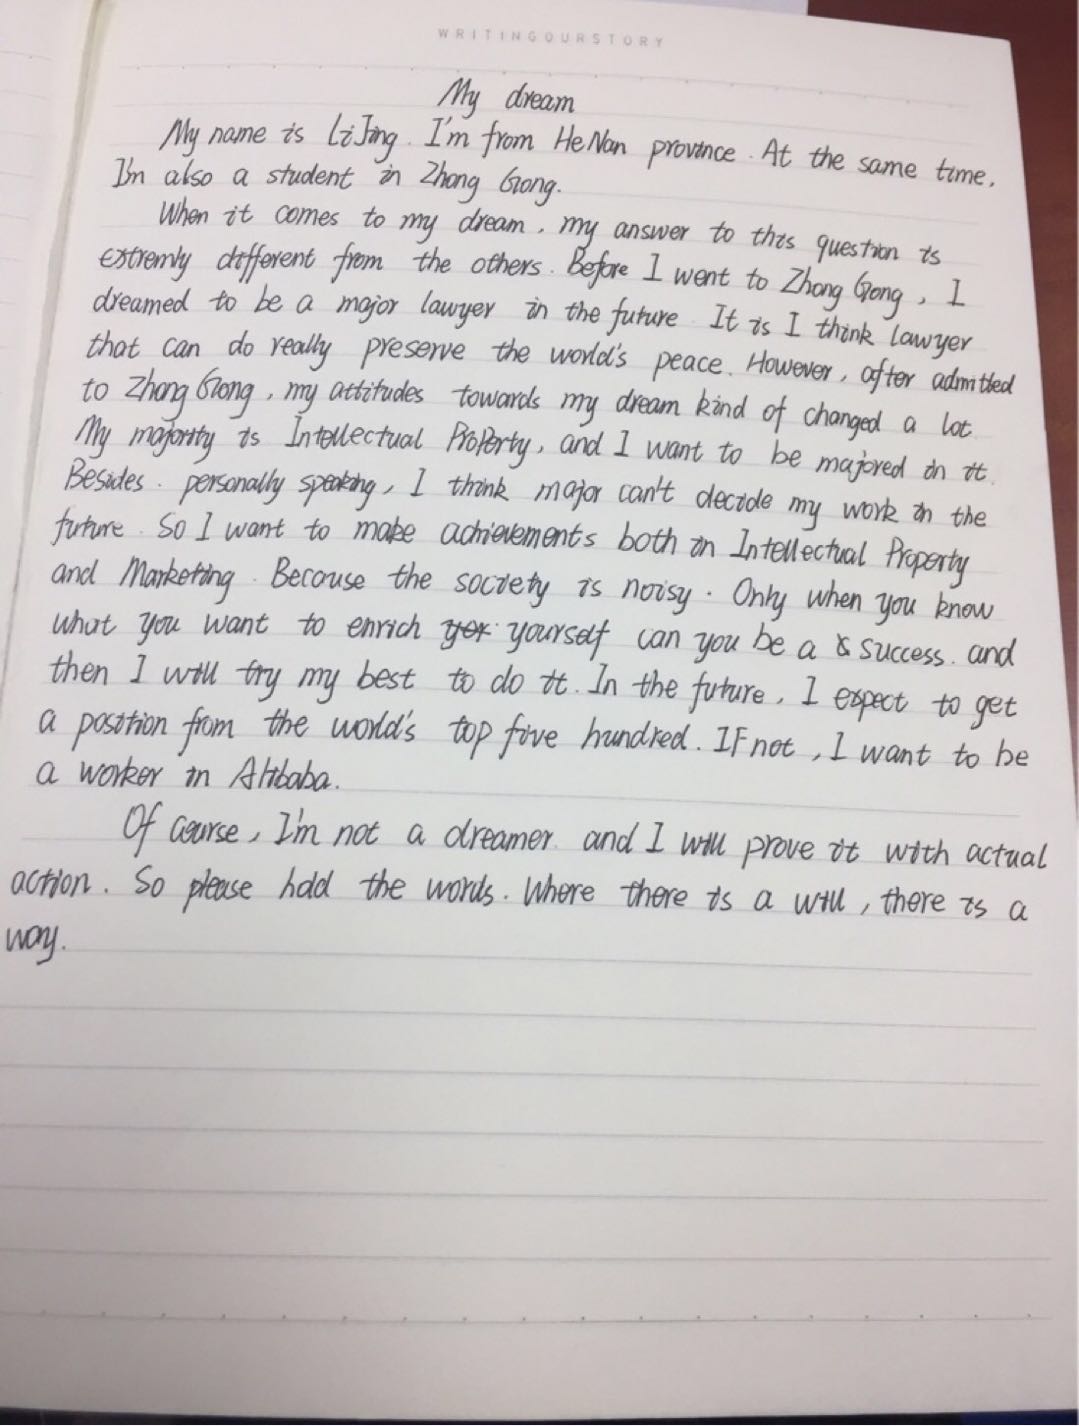 WRITINGOURSTORY
My dream
My name is LiJing. I'm from HeNan province. At the same time,
I'm also a student in Zhong Gong.
When it comes to my dream, my answer to this question is
extremly different from the others. Before I went to Zhong Gong, I
dreamed to be a major lawyer in the future It is I think lawyer
that can do really preserve the world's peace. However, after admitted
to Zhong Gong, my attitudes towards my dream kind of changed a lot.
My majority is Intellectual ProPerty, and I want to be majored in it.
Besides. personally speaking, I think major can't decide my work in the
future. So I want to make achievements both in Intellectual Property
and Marketing. Because the society is noisy. Only when you know
what you want to enrich yourself can you be a success. and
then I will try my best to do it. In the future, I expect to get
a position from the world's top five hundred. IF not, I want to be
a worker in Alibaba.
Of course, I'm not a dreamer. and I will prove it with actual
action. So please hold the words. Where there is a will, there is a
way.